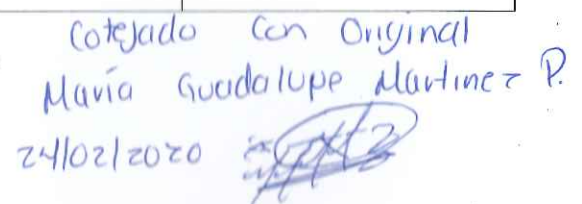 Cotejado con Original
María Guadalupe Martinez P.
24/02/2020